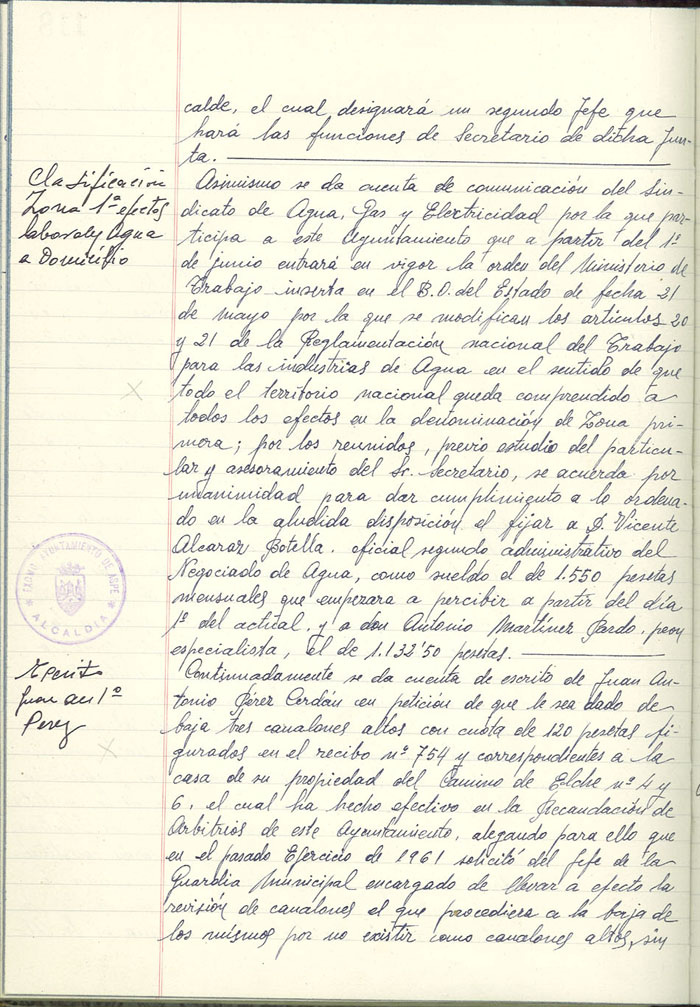 calde, el cual designará un segundo Jefe que
hará las funciones de Secretario de dicha Jun-
ta.
Clasificación
Zona 1ª efectos
laborales Agua
a Domicilio
Asimismo se da cuenta de comunicación del Sin-
dicato de Agua, Gas y Electricidad por la que par-
ticipa a este Ayuntamiento que a partir del 1º
de junio entrará en vigor la orden del Ministerio de
Trabajo inserta en el B.O. del Estado de fecha 21
de mayo por la que se modifican los artículos 20
y 21 de la Reglamentación nacional del Trabajo
para las industrias de Agua en el sentido de que
todo el territorio nacional queda comprendido a
todos los efectos en la denominación de Zona pri-
mera; por los reunidos, previo estudio del particu-
lar y asesoramiento del Sr. Secretario, se acuerda por
unanimidad para dar cumplimiento a lo ordena-
do en la aludida disposición el fijar a D. Vicente
Alcaraz Botella, oficial segundo administrativo del
Negociado de Agua, como sueldo el de 1.550 pesetas
mensuales que empezara a percibir a partir del día
1º del actual, y a don Antonio Martínez Pardo, peon
especialista, el de 1.132'50 pesetas.
AYUNTAMIENTO DE ASPE
ALCALDIA
Escrito
Juan Ant º
Perez
Continuadamente se da cuenta de escrito de Juan An-
tonio Pérez Cerdán en petición de que le sea dado de
baja tres canalones altos con cuota de 120 pesetas fi-
gurados en el recibo nº 754 y correspondientes a la
casa de su propiedad del Camino de Elche nº 4 y
6, el cual ha hecho efectivo en la Recaudación de
Arbitrios de este Ayuntamiento, alegando para ello que
en el pasado Ejercicio de 1961 solicitó del Jefe de la
Guardia Municipal encargado de llevar a efecto la
revisión de canalones el que procediera a la baja de
los mismos por no existir como canalones altos, sin